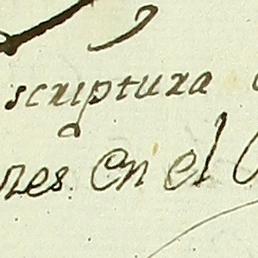 scriptura
en el